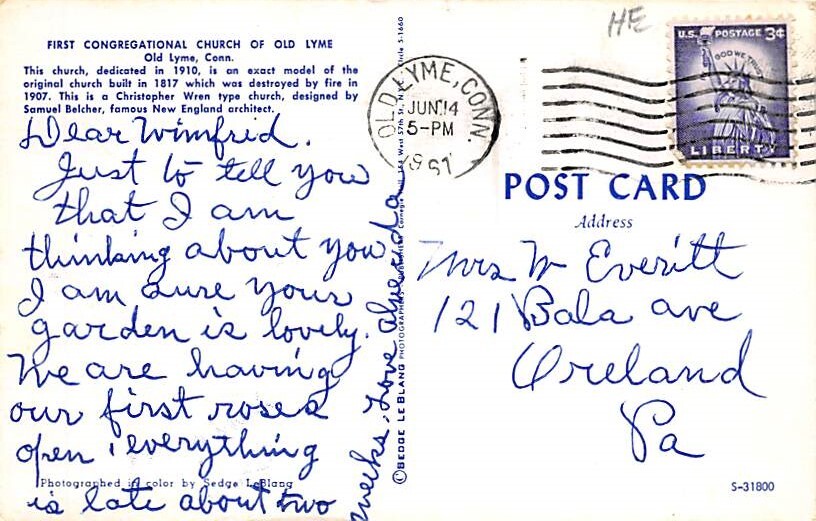 FIRST CONGREGATIONAL CHURCH OF OLD LYME
Old Lyme, Conn.
This church, dedicated in 1910, is an exact model of the
original church built in 1817 which was destroyed by fire in
1907. This is a Christopher Wren type church, designed by
Samuel Belcher, famous New England architect.
Dear Winifrid.
Just to tell you
that I am
thinking about you
I am sure your
garden is lovely.
We are having
our first roses
open, everything
is late about two
weeks. Love
Photographed in color by Sedge LeBlang
© SEDGE LE BLANG PHOTOGRAPHERS
West 57th St., N.Y.
S-1660
HE
OLD LYME, CONN.
JUN 14
5-PM
U.S. POSTAGE 3¢
IN GOD WE TRUST
LIBERTY
POST CARD
Address
Mrs W Everitt
121 Bala ave
Oreland
Pa
S-31800